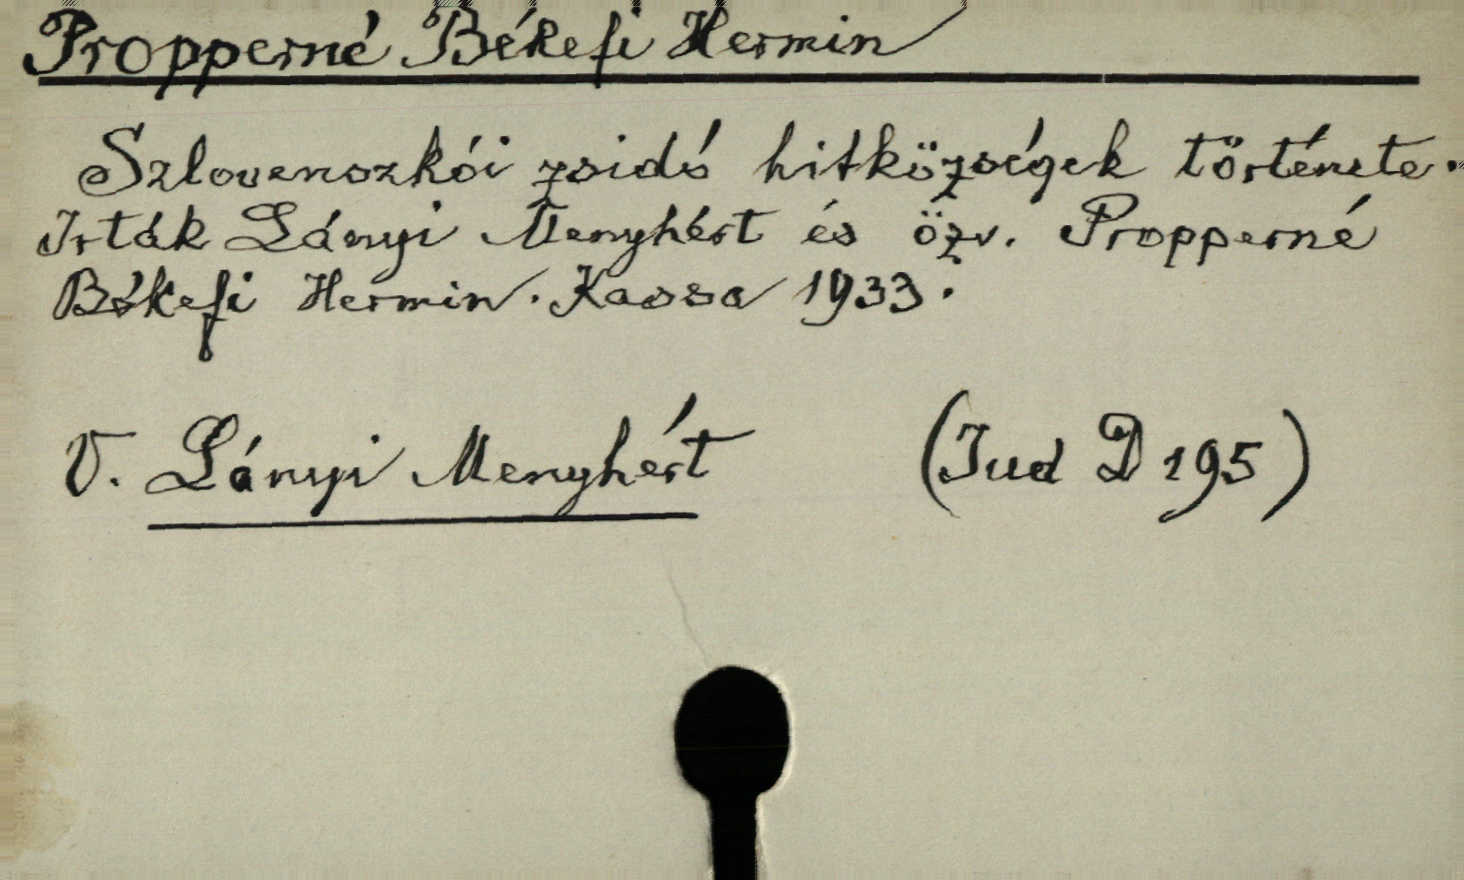 Propperné Békefi Hermin
Szlovenszkói zsidó hitközségek története.
Irták Lányi Menyhért és özv. Propperné
Békefi Hermin. Kassa 1933.
V. Lányi Menyhért (Jud D 195)